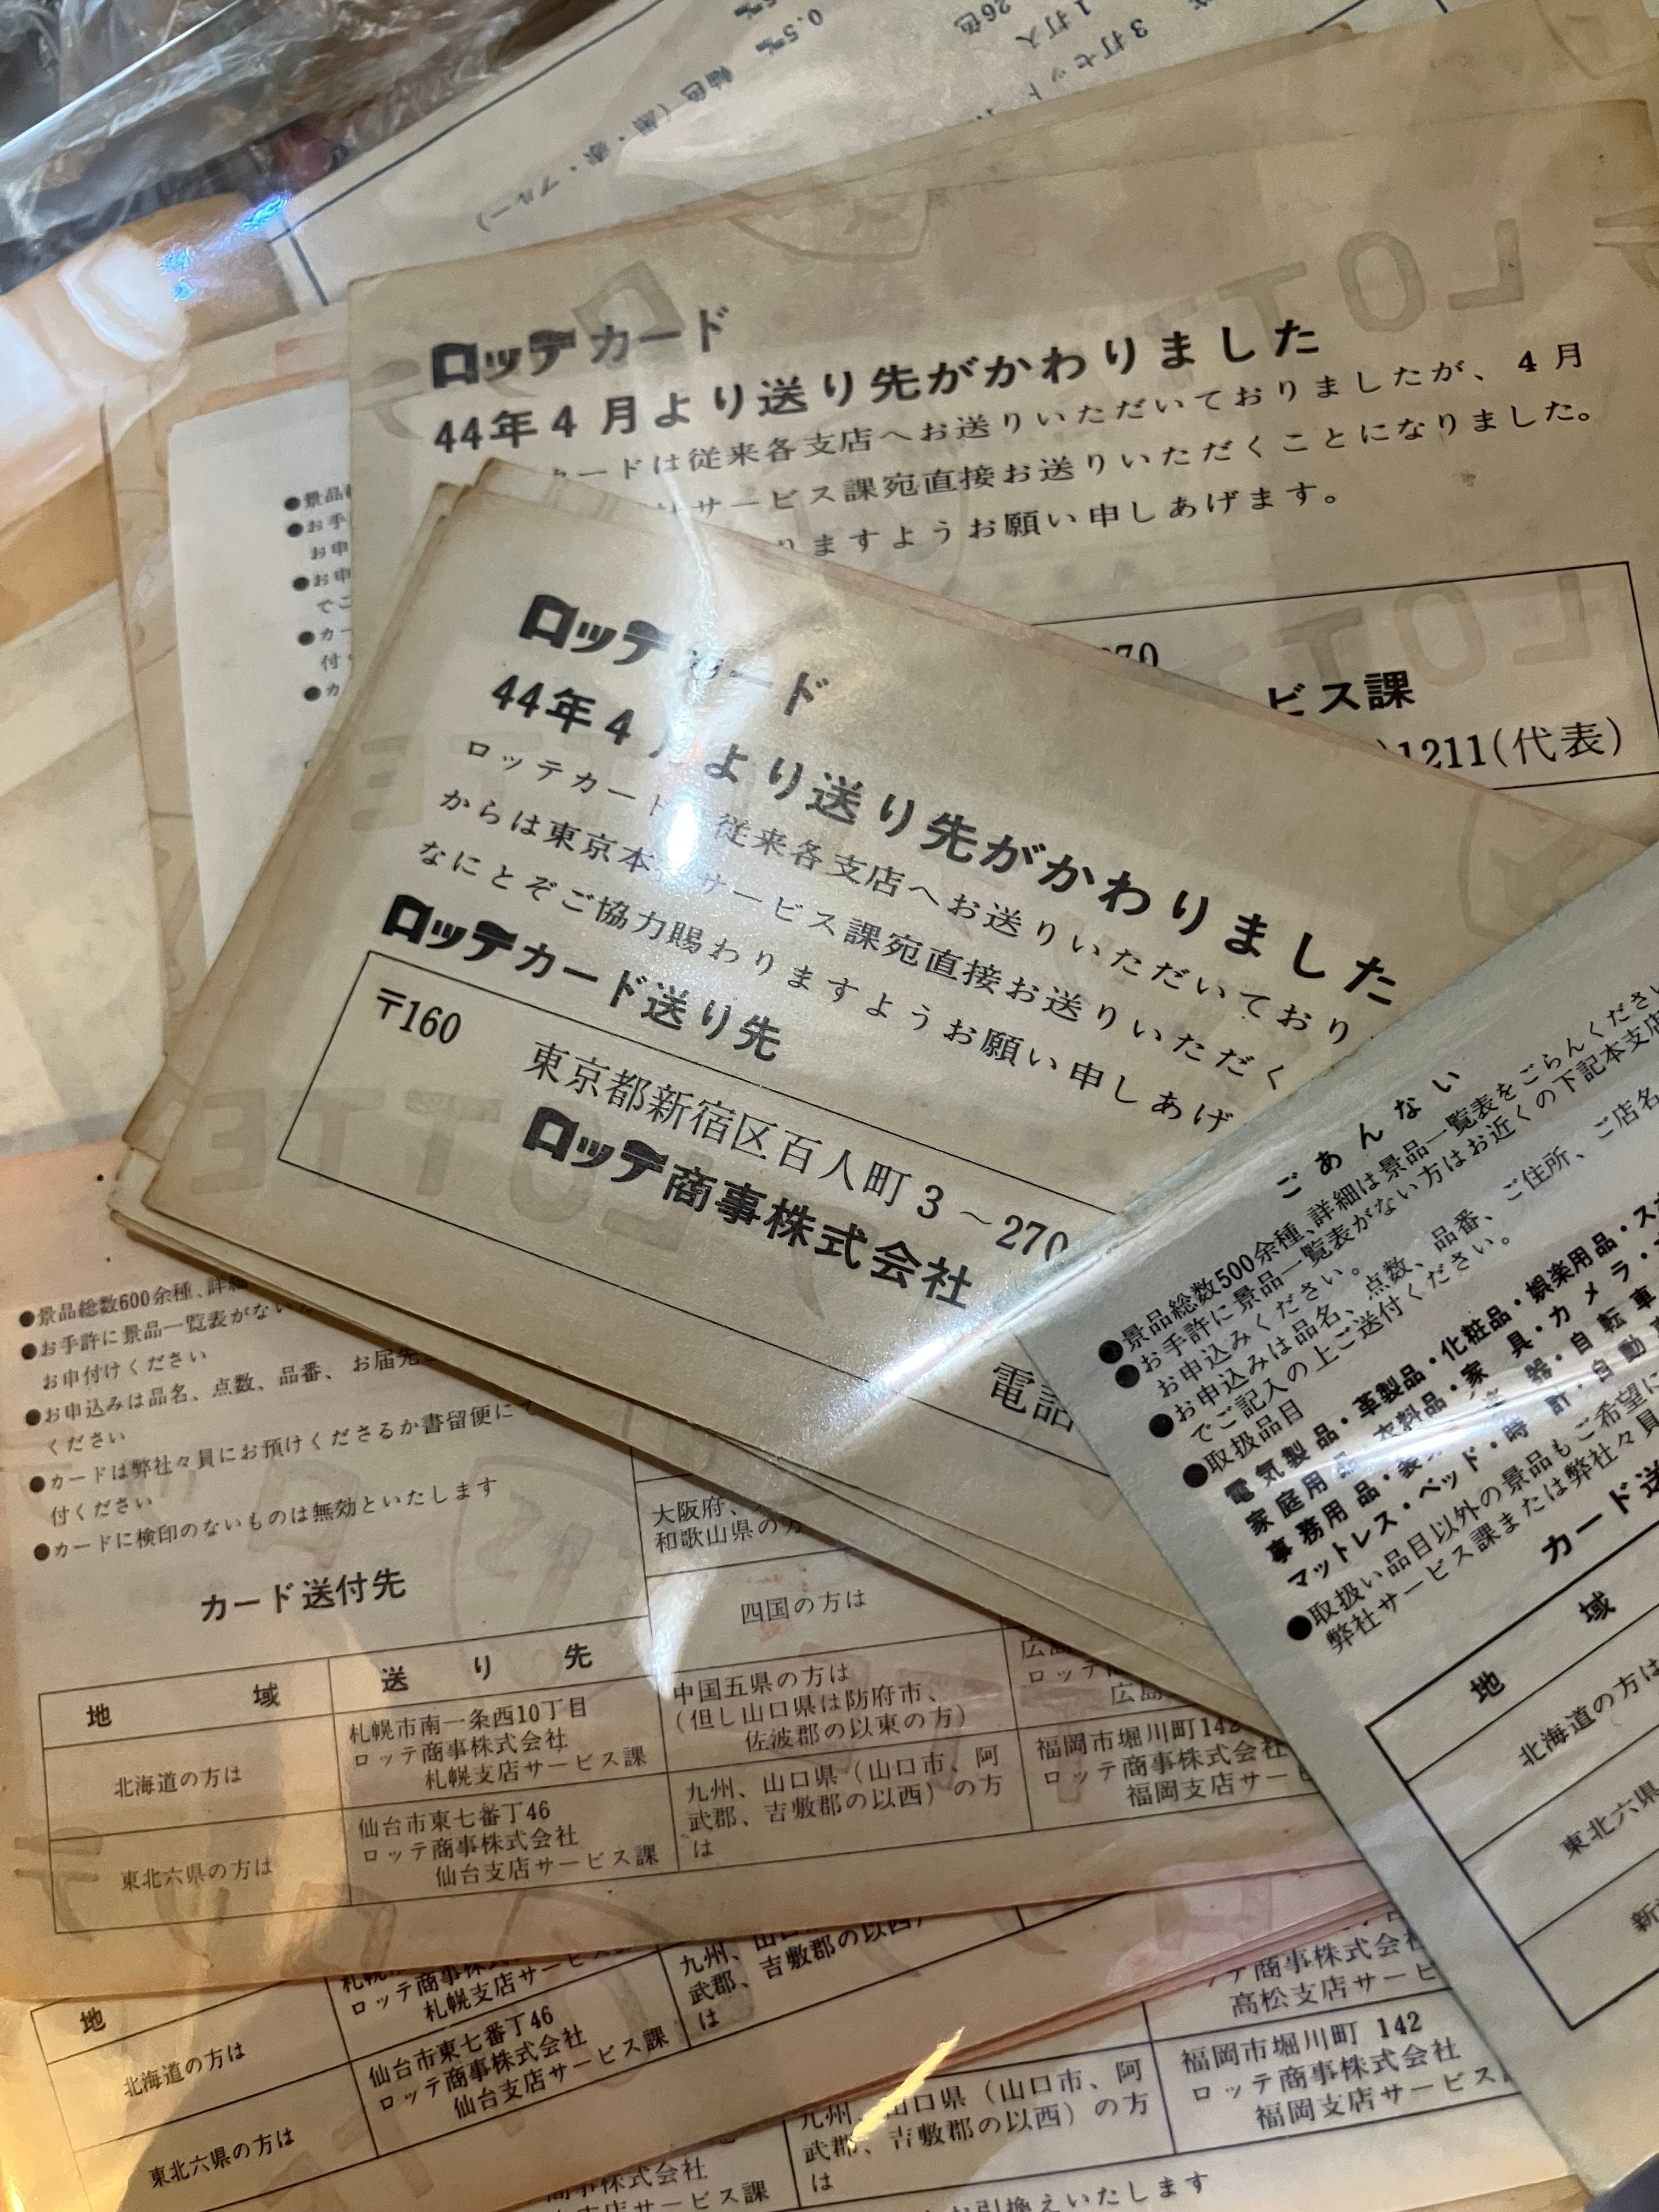 3打セット
1打入
26色
0.5%
軸色(黒・赤・ブルー)
LOT
ロッテカード
44年4月より送り先がかわりました
カードは従来各支店へお送りいただいておりましたが、4月
サービス課宛直接お送りいただくことになりました。
りますようお願い申しあげます。
270
ビス課
1211(代表)
ロッテカード
44年4月より送り先がかわりました
ロッテカード 従来各支店へお送りいただいており
からは東京本 サービス課宛直接お送りいただく
なにとぞご協力賜わりますようお願い申しあげ
ロッテカード送り先
〒160 東京都新宿区百人町3～270
ロッテ商事株式会社
電話
ごあんない
●景品総数500余種、詳細は景品一覧表をごらんください
●お手許に景品一覧表がない方はお近くの下記本支店
お申込みください。
●お申込みは品名、点数、品番、ご住所、ご店名
でご記入の上ご送付ください。
●取扱品目
電気製品・革製品・化粧品・娯楽用品・ス
家庭用品・衣料品・家具・カメラ・
事務用品・装 器・自転車
マットレス・ベッド・時計・自動
●取扱い品目以外の景品もご希望に
弊社サービス課または弊社々員
カード送
地 域
北海道の方は
東北六県
新
●景品総数600余種、詳細
●お手許に景品一覧表がない
お申付けください
●お申込みは品名、点数、品番、お届先
ください
●カードは弊社々員にお預けくださるか書留便にて
付ください
●カードに検印のないものは無効といたします
カード送付先
地 域 送り先
北海道の方は
札幌市南一条西10丁目
ロッテ商事株式会社
札幌支店サービス課
東北六県の方は
仙台市東七番丁46
ロッテ商事株式会社
仙台支店サービス課
大阪府、
和歌山県の方
四国の方は
中国五県の方は
(但し山口県は防府市、
佐波郡の以東の方)
九州、山口県(山口市、阿
武郡、吉敷郡の以西)の方
は
福岡市堀川町142
ロッテ商事株式会社
福岡支店サー
地
北海道の方は
ロッテ商事株式会社
札幌支店サービス
東北六県の方は
仙台市東七番丁46
ロッテ商事株式会社
仙台支店サービス課
九州、山口
武郡、吉敷郡の以西)
は
テ商事株式会社
高松支店サービ
九州、山口県(山口市、阿
武郡、吉敷郡の以西)の方
は
福岡市堀川町 142
ロッテ商事株式会社
福岡支店サービス
商事株式会社
支店サービス課
お引換えいたします